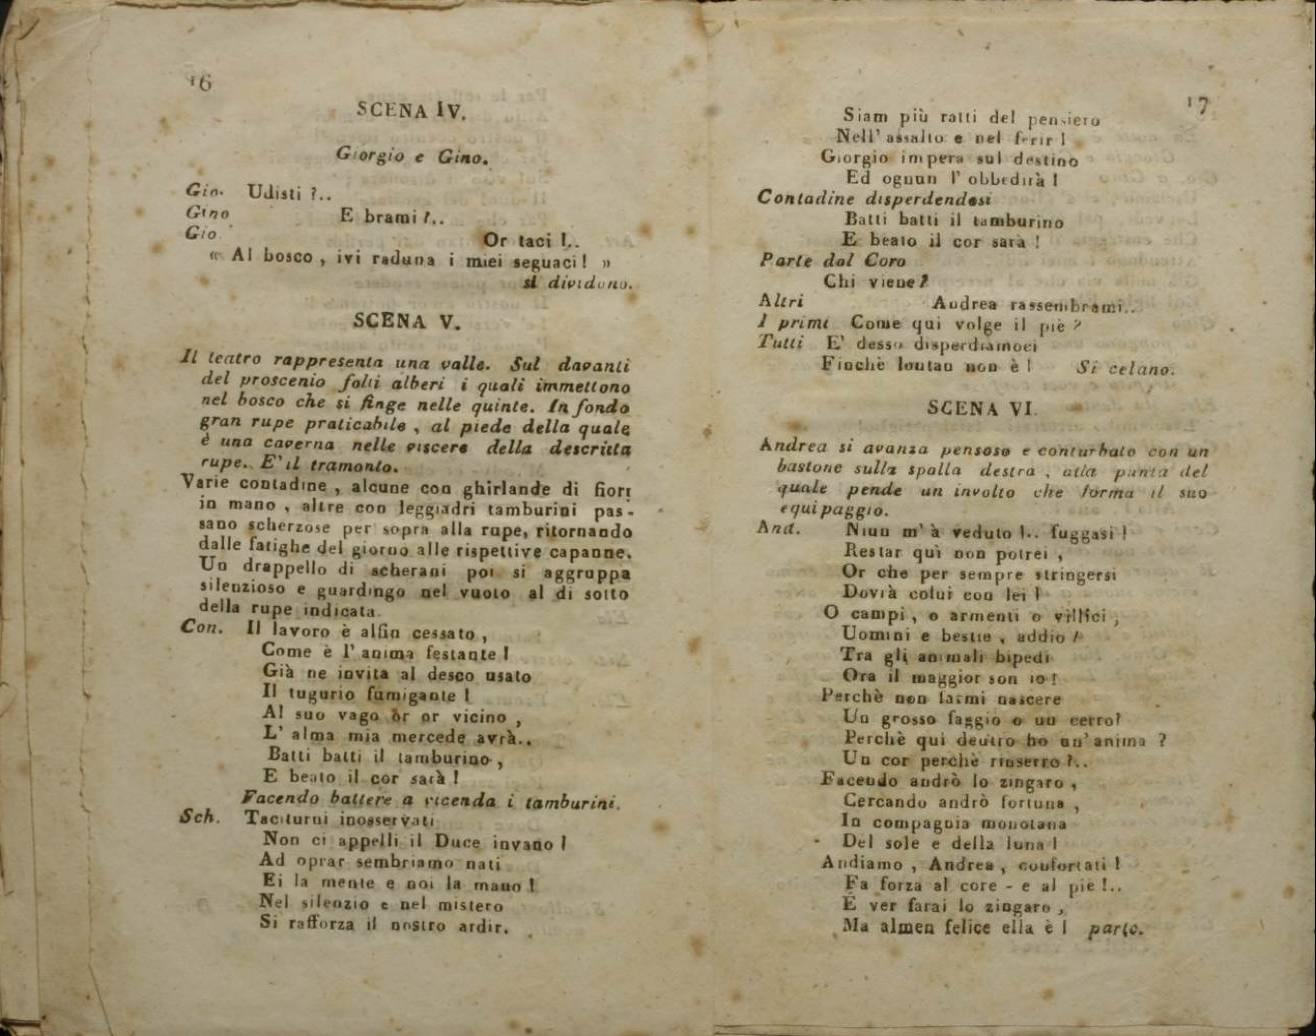 16
SCENA IV.
Giorgio e Gino.
Gio. Udisti ?..
Gino E brami ?..
Gio Or taci !..
« Al bosco , ivi raduna i miei seguaci ! »
si dividono.
SCENA V.
Il teatro rappresenta una valle. Sul davanti
del proscenio folti alberi i quali immettono
nel bosco che si finge nelle quinte. In fondo
gran rupe praticabile , al piede della quale
è una caverna nelle viscere della descritta
rupe. E' il tramonto.
Varie contadine , alcune con ghirlande di fiori
in mano , altre con leggiadri tamburini pas-
sano scherzose per sopra alla rupe, ritornando
dalle fatighe del giorno alle rispettive capanne.
Un drappello di scherani poi si aggruppa
silenzioso e guardingo nel vuoto al di sotto
della rupe indicata.
Con. Il lavoro è alfin cessato ,
Come è l' anima festante !
Già ne invita al desco usato
Il tugurio fumigante !
Al suo vago or or vicino ,
L' alma mia mercede avrà..
Batti batti il tamburino ,
E beato il cor sarà !
Facendo battere a vicenda i tamburini.
Sch. Taciturni inosservati
Non ci appelli il Duce invano !
Ad oprar sembriamo nati
Ei la mente e noi la mano !
Nel silenzio e nel mistero
Si rafforza il nostro ardir.
17
Siam più ratti del pensiero
Nell' assalto e nel ferir !
Giorgio impera sul destino
Ed ognun l' obbedirà !
Contadine disperdendosi
Batti batti il tamburino
E beato il cor sarà !
Parte dal Coro
Chi viene ?
Altri Andrea rassembrami..
I primi Come qui volge il piè ?
Tutti E' desso disperdiamoci
Finchè lontan non è ! Si celano.
SCENA VI.
Andrea si avanza pensoso e conturbato con un
bastone sulla spalla destra , alla punta del
quale pende un involto che forma il suo
equipaggio.
And. Niun m' à veduto !.. fuggasi !
Restar quì non potrei ,
Or che per sempre stringersi
Dovrà colui con lei !
O campi , o armenti o villici ,
Uomini e bestie , addio !
Tra gli animali bipedi
Ora il maggior son io !
Perchè non farmi nascere
Un grosso faggio o un cerro?
Perchè qui dentro ho un' anima ?
Un cor perchè rinserro ?..
Facendo andrò lo zingaro ,
Cercando andrò fortuna ,
In compagnia monotana
Del sole e della luna !
Andiamo , Andrea , confortati !
Fa forza al core - e al piè !..
È ver farai lo zingaro ,
Ma almen felice ella è ! parte.